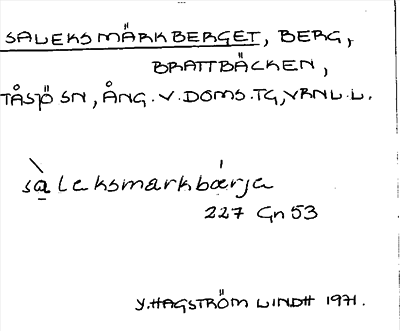 SALEKSMÄRKBERGET, BERG,
BRATTBÄCKEN,
TÅSJÖ SN, ÅNG. V. DOMS. TG, VRNL. L.
sàleksmarkbærja
227 Gn 53
Y. HAGSTRÖM LINDH 1971.